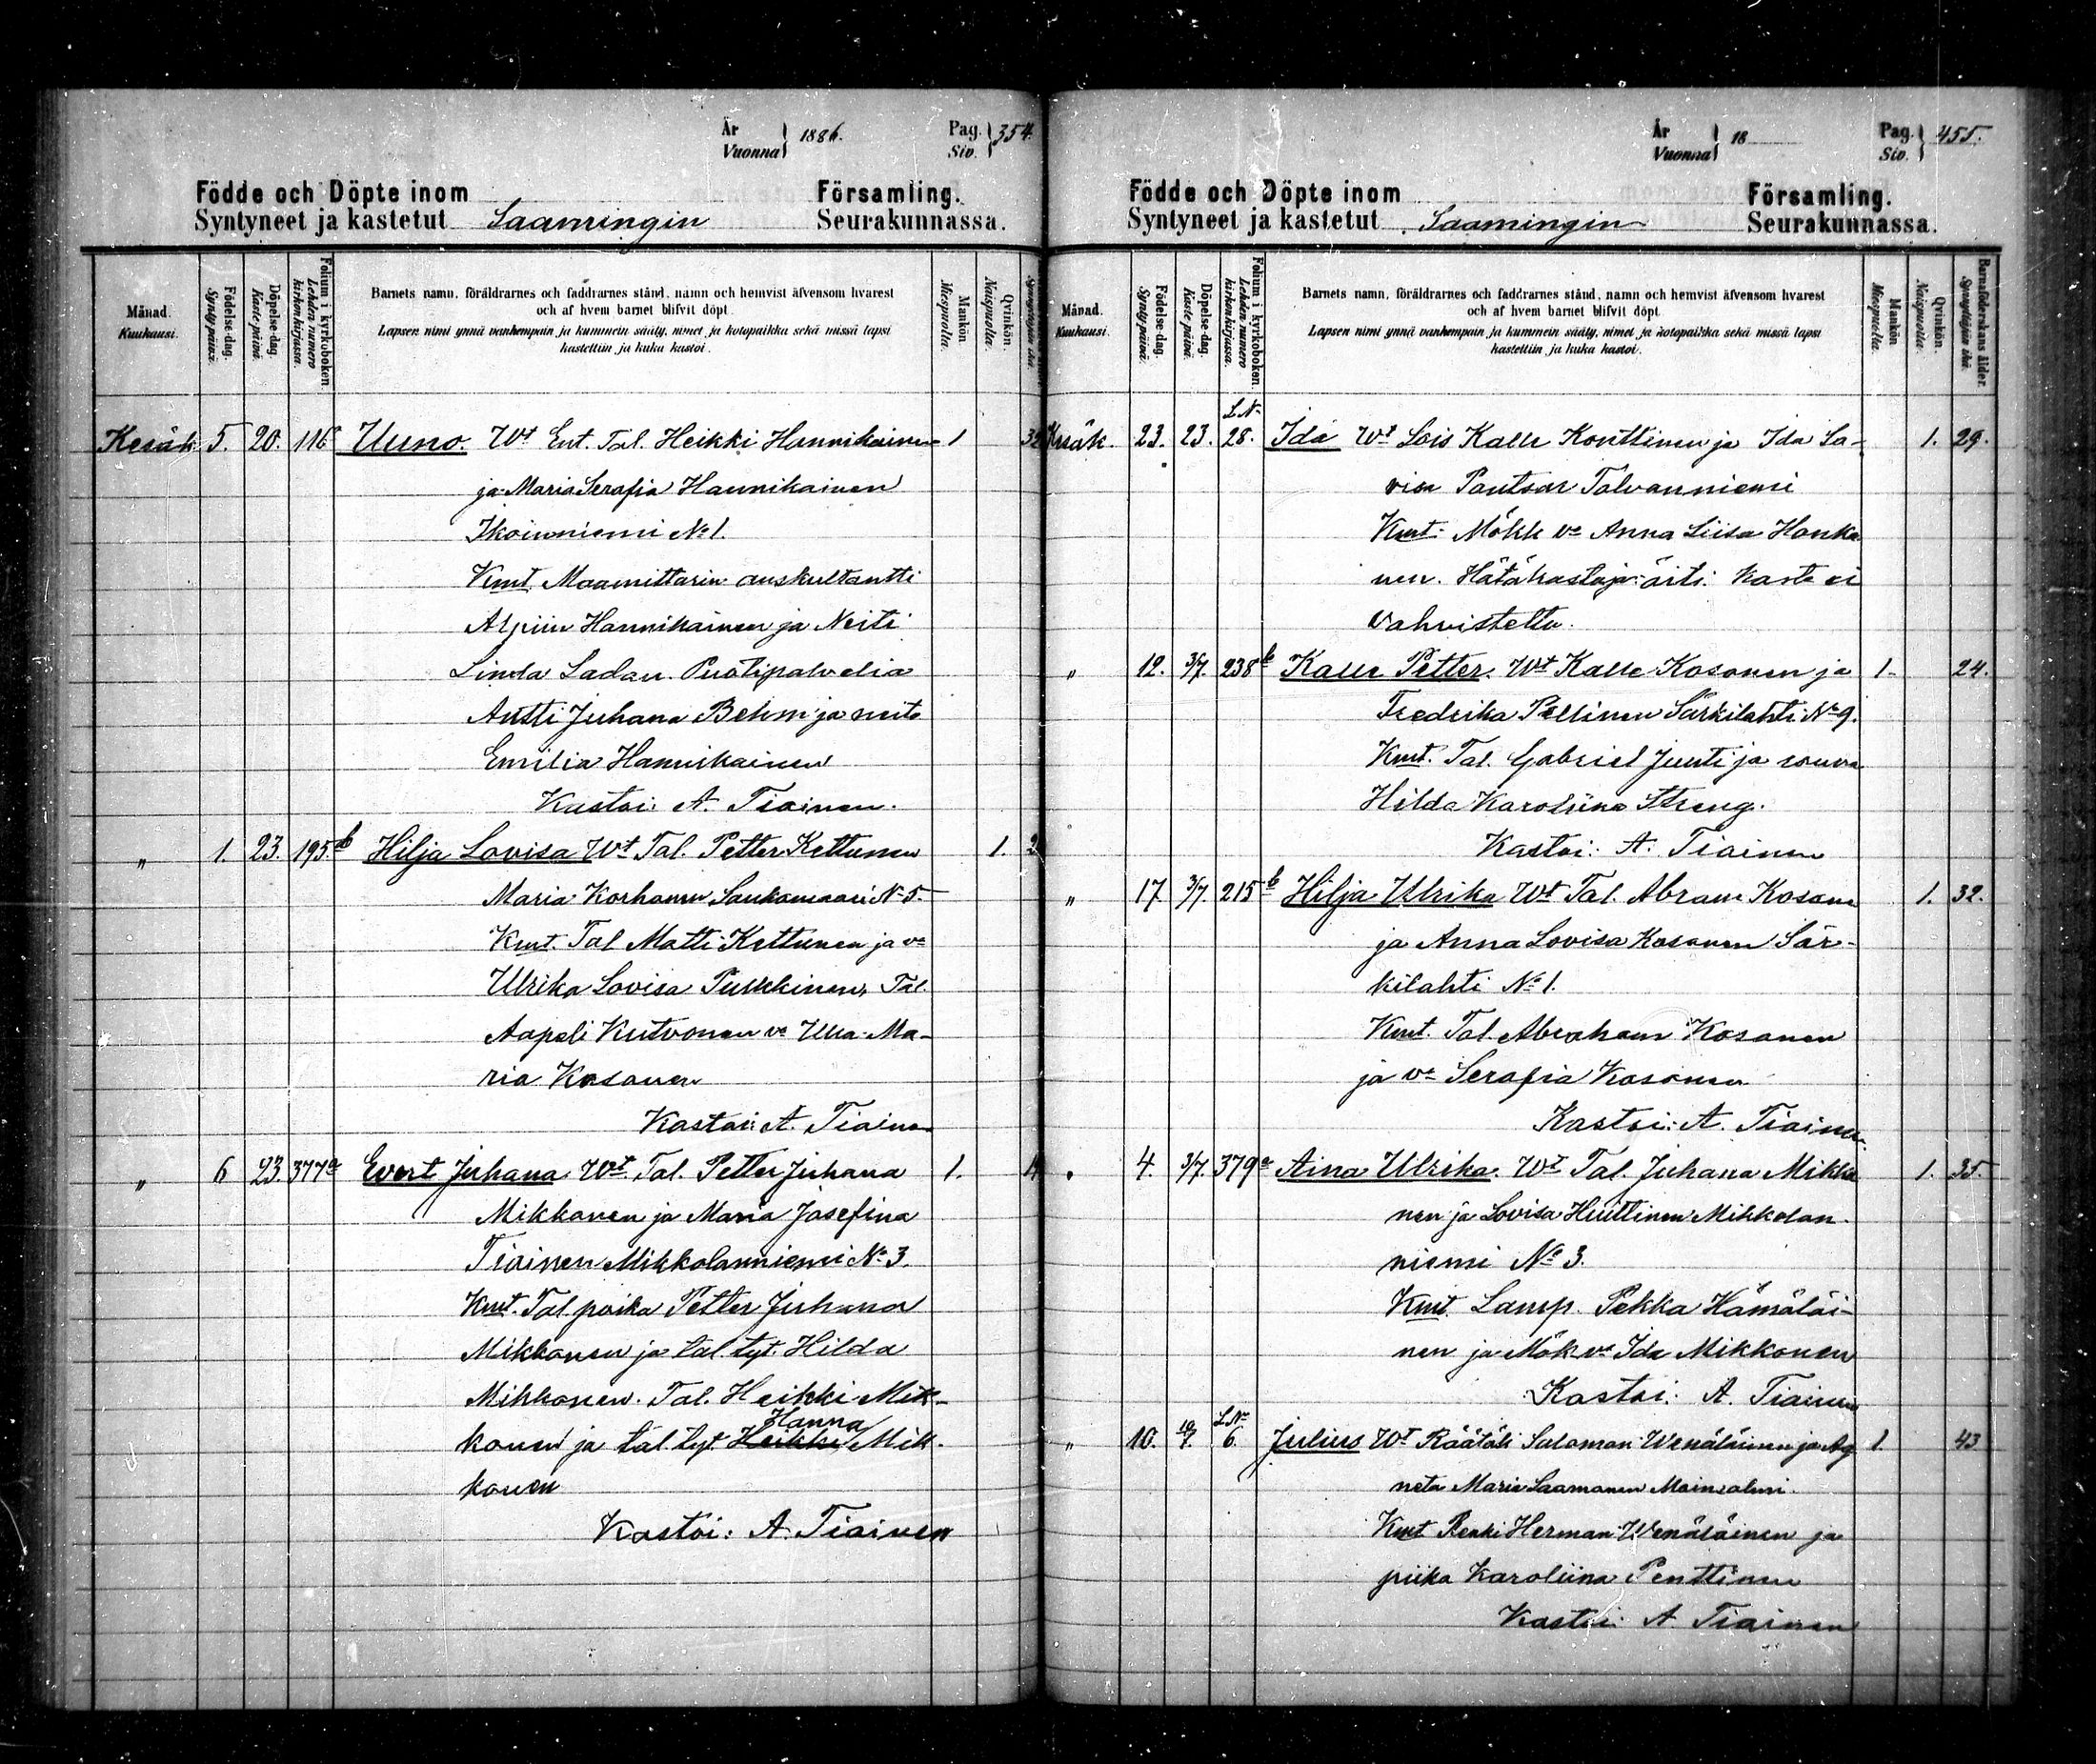 År
Vuonna } 1886.
Pag.
Siv. } 354.
Födde och Döpte inom Församling.
Syntyneet ja kastetut Saamingin Seurakunnassa.
Månad.
Kuukausi.
Födelse-dag.
Syntypäivä.
Döpelse-dag.
Kaste päivä.
Folium i kyrkoboken.
Lehden numero kirkonkirjassa.
Barnets namn, föräldrarnes och faddrarnes stånd, namn och hemvist äfvensom hvarest
och af hvem barnet blifvit döpt.
Lapsen nimi ynnä vanhempain ja kummein sääty, nimet ja kotopaikka sekä missä lapsi
kastettiin ja kuka kastoi.
Mankön.
Miespuolia.
Qvinkön.
Naispuolia.
Kesäk 5. 20. 116 Uuno. Wt Ent. Tal. Heikki Hannikainen 1
ja Maria Serafia Hannikainen
Ikoinniemi No 1.
Kmt. Maamittarin auskultantti
Alpiin Hannikainen ja Neiti
Linda Ladau. Puotipalvelia
Antti Juhana Behm ja neito
Emilia Hannikainen
Kastoi: A. Tiainen.
" 1. 23. 195 b Hilja Lovisa Wt Tal. Petter Kettunen 1.
Maria Korhonen Laukansaari No 5.
Kmt. Tal Matti Kettunen ja vo
Ulrika Lovisa Pulkkinen, Tal.
Aapeli Kutvonen vo Ulla Ma-
ria Kosonen
Kastoi: A. Tiainen
" 6 23. 377a Evert Juhana Wt. Tal. Petter Juhana 1.
Mikkonen ja Maria Josefina
Tiainen Mikkolanniemi No 3.
Kmt. Tal. poika Petter Juhana
Mikkonen ja tal. tyt. Hilda
Mikkonen. Tal. Heikki Mik-
Hanna
konen ja tal. tyt. Heikki Mik-
konen
Kastoi: A. Tiainen
År
Vuonna } 18
Pag.
Siv. } 455.
Födde och Döpte inom Församling.
Syntyneet ja kastetut Saamingin Seurakunnassa.
Månad.
Kuukausi.
Födelse-dag.
Syntypäivä.
Döpelse-dag.
Kaste päivä.
Folium i kyrkoboken.
Lehden numero kirkonkirjassa.
Barnets namn, föräldrarnes och faddrarnes stånd, namn och hemvist äfvensom hvarest
och af hvem barnet blifvit döpt.
Lapsen nimi ynnä vanhempain ja kummein sääty, nimet ja kotopaikka sekä missä lapsi
kastettiin ja kuka kastoi.
Mankön.
Miespuolia.
Qvinkön.
Naispuolia.
Barnaföderskans ålder.
Synnyttäjän ikä.
L No
Kesäk. 23. 23. 28. Ida Wt Lois Kalle Konttinen ja Ida Sa- 1. 29.
visa Pantsar Tolvanniemi
Kmt. Mökk vo Anna Liisa Honka
nen. Hätäkastaja: äiti. Kaste ei
vahvistettu.
" 12. 3/7. 238 b Kalle Petter. Wt Kalle Kosonen ja 1. 24.
Fredrika Pellinen Särkilahti No 9.
Kmt. Tal. Gabriel Juuti ja rouva
Hilda Karoliina Streng.
Kastoi: A. Tiainen
" 17. 3/7. 215 b Hilja Ulrika Wt Tal. Abram Kosone 1. 32.
ja Anna Lovisa Kosonen Sär-
kilahti No 1.
Kmt. Tal. Abraham Kosonen
ja vo Serafia Kosonen
Kastoi: A. Tiainen
" 4. 3/7. 379a Aina Ulrika. Wt Tal. Juhana Mikko 1. 35.
nen ja Lovisa Huttinen Mikkolan-
niemi No 3.
Kmt. Lamp. Pekka Hämäläi-
nen ja Mök. vo Ida Mikkonen
Kastoi: A. Tiainen
L No
" 10. 10/7. 6. Julius Wt Räätäli Salomon Wenäläinen ja Ag 1. 43
neta Maria Saamanen Moinsalmi.
Kmt Renki Herman Wenäläinen ja
piika Karoliina Penttinen
Kastoi: A. Tiainen